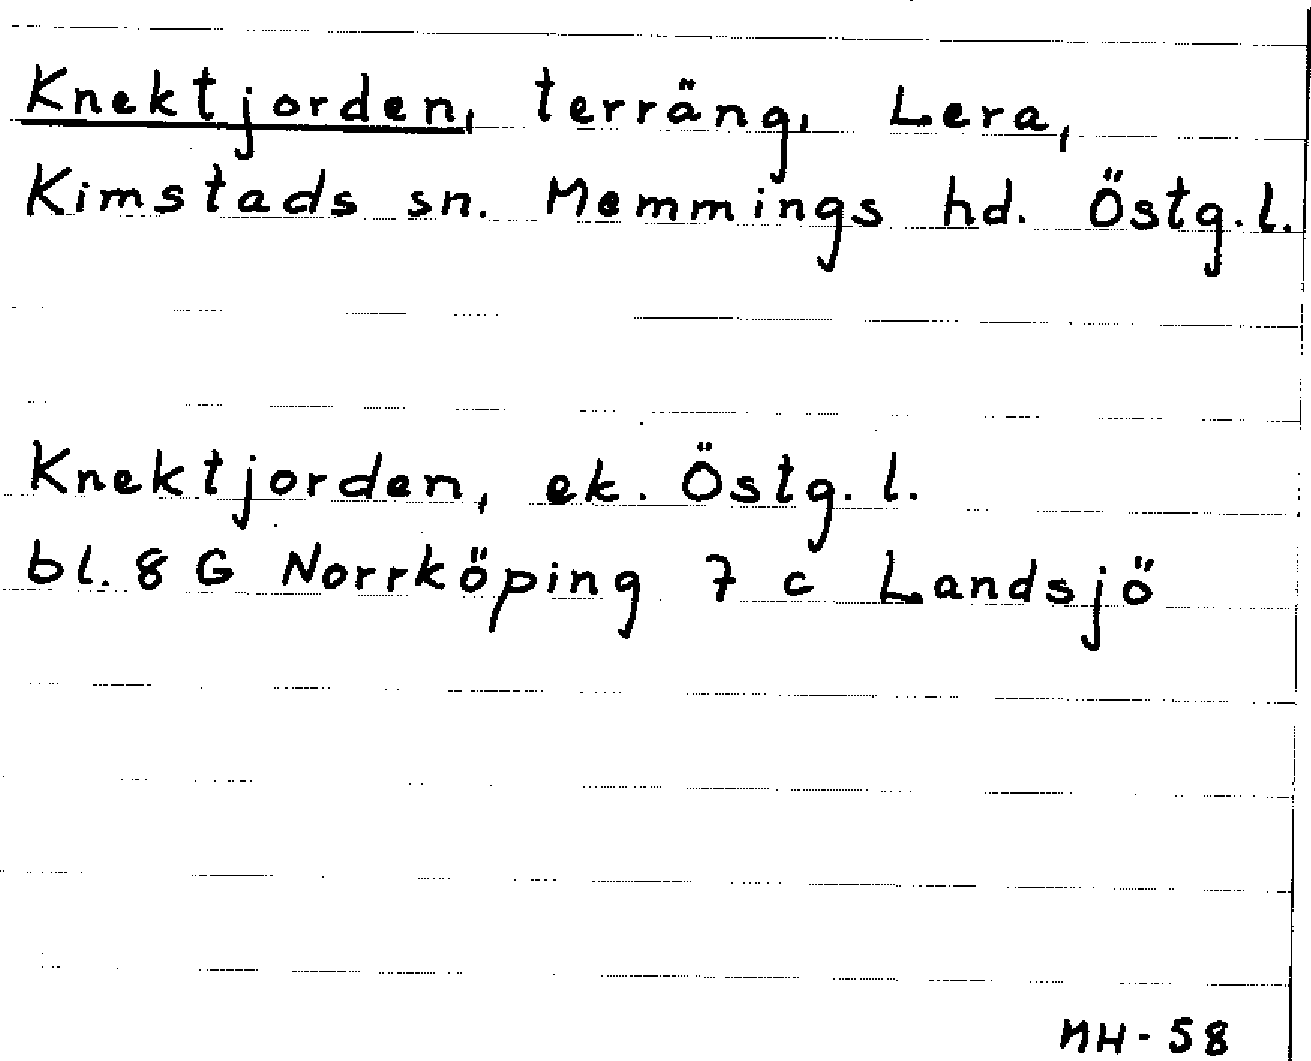 Knektjorden, terräng, Lera,
Kimstads sn. Memmings hd. Östg.l.
Knektjorden, ek. Östg. l.
bl. 8 G Norrköping 7 c Landsjö
MH-58